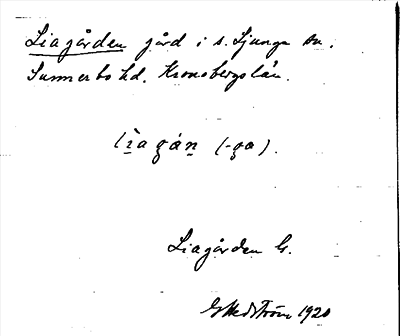 Liagården gård i s. Ljunga sn.
Sunnerbo hd. Kronobergs län.
(-ga).
Liagården G.
G Hedström 1920